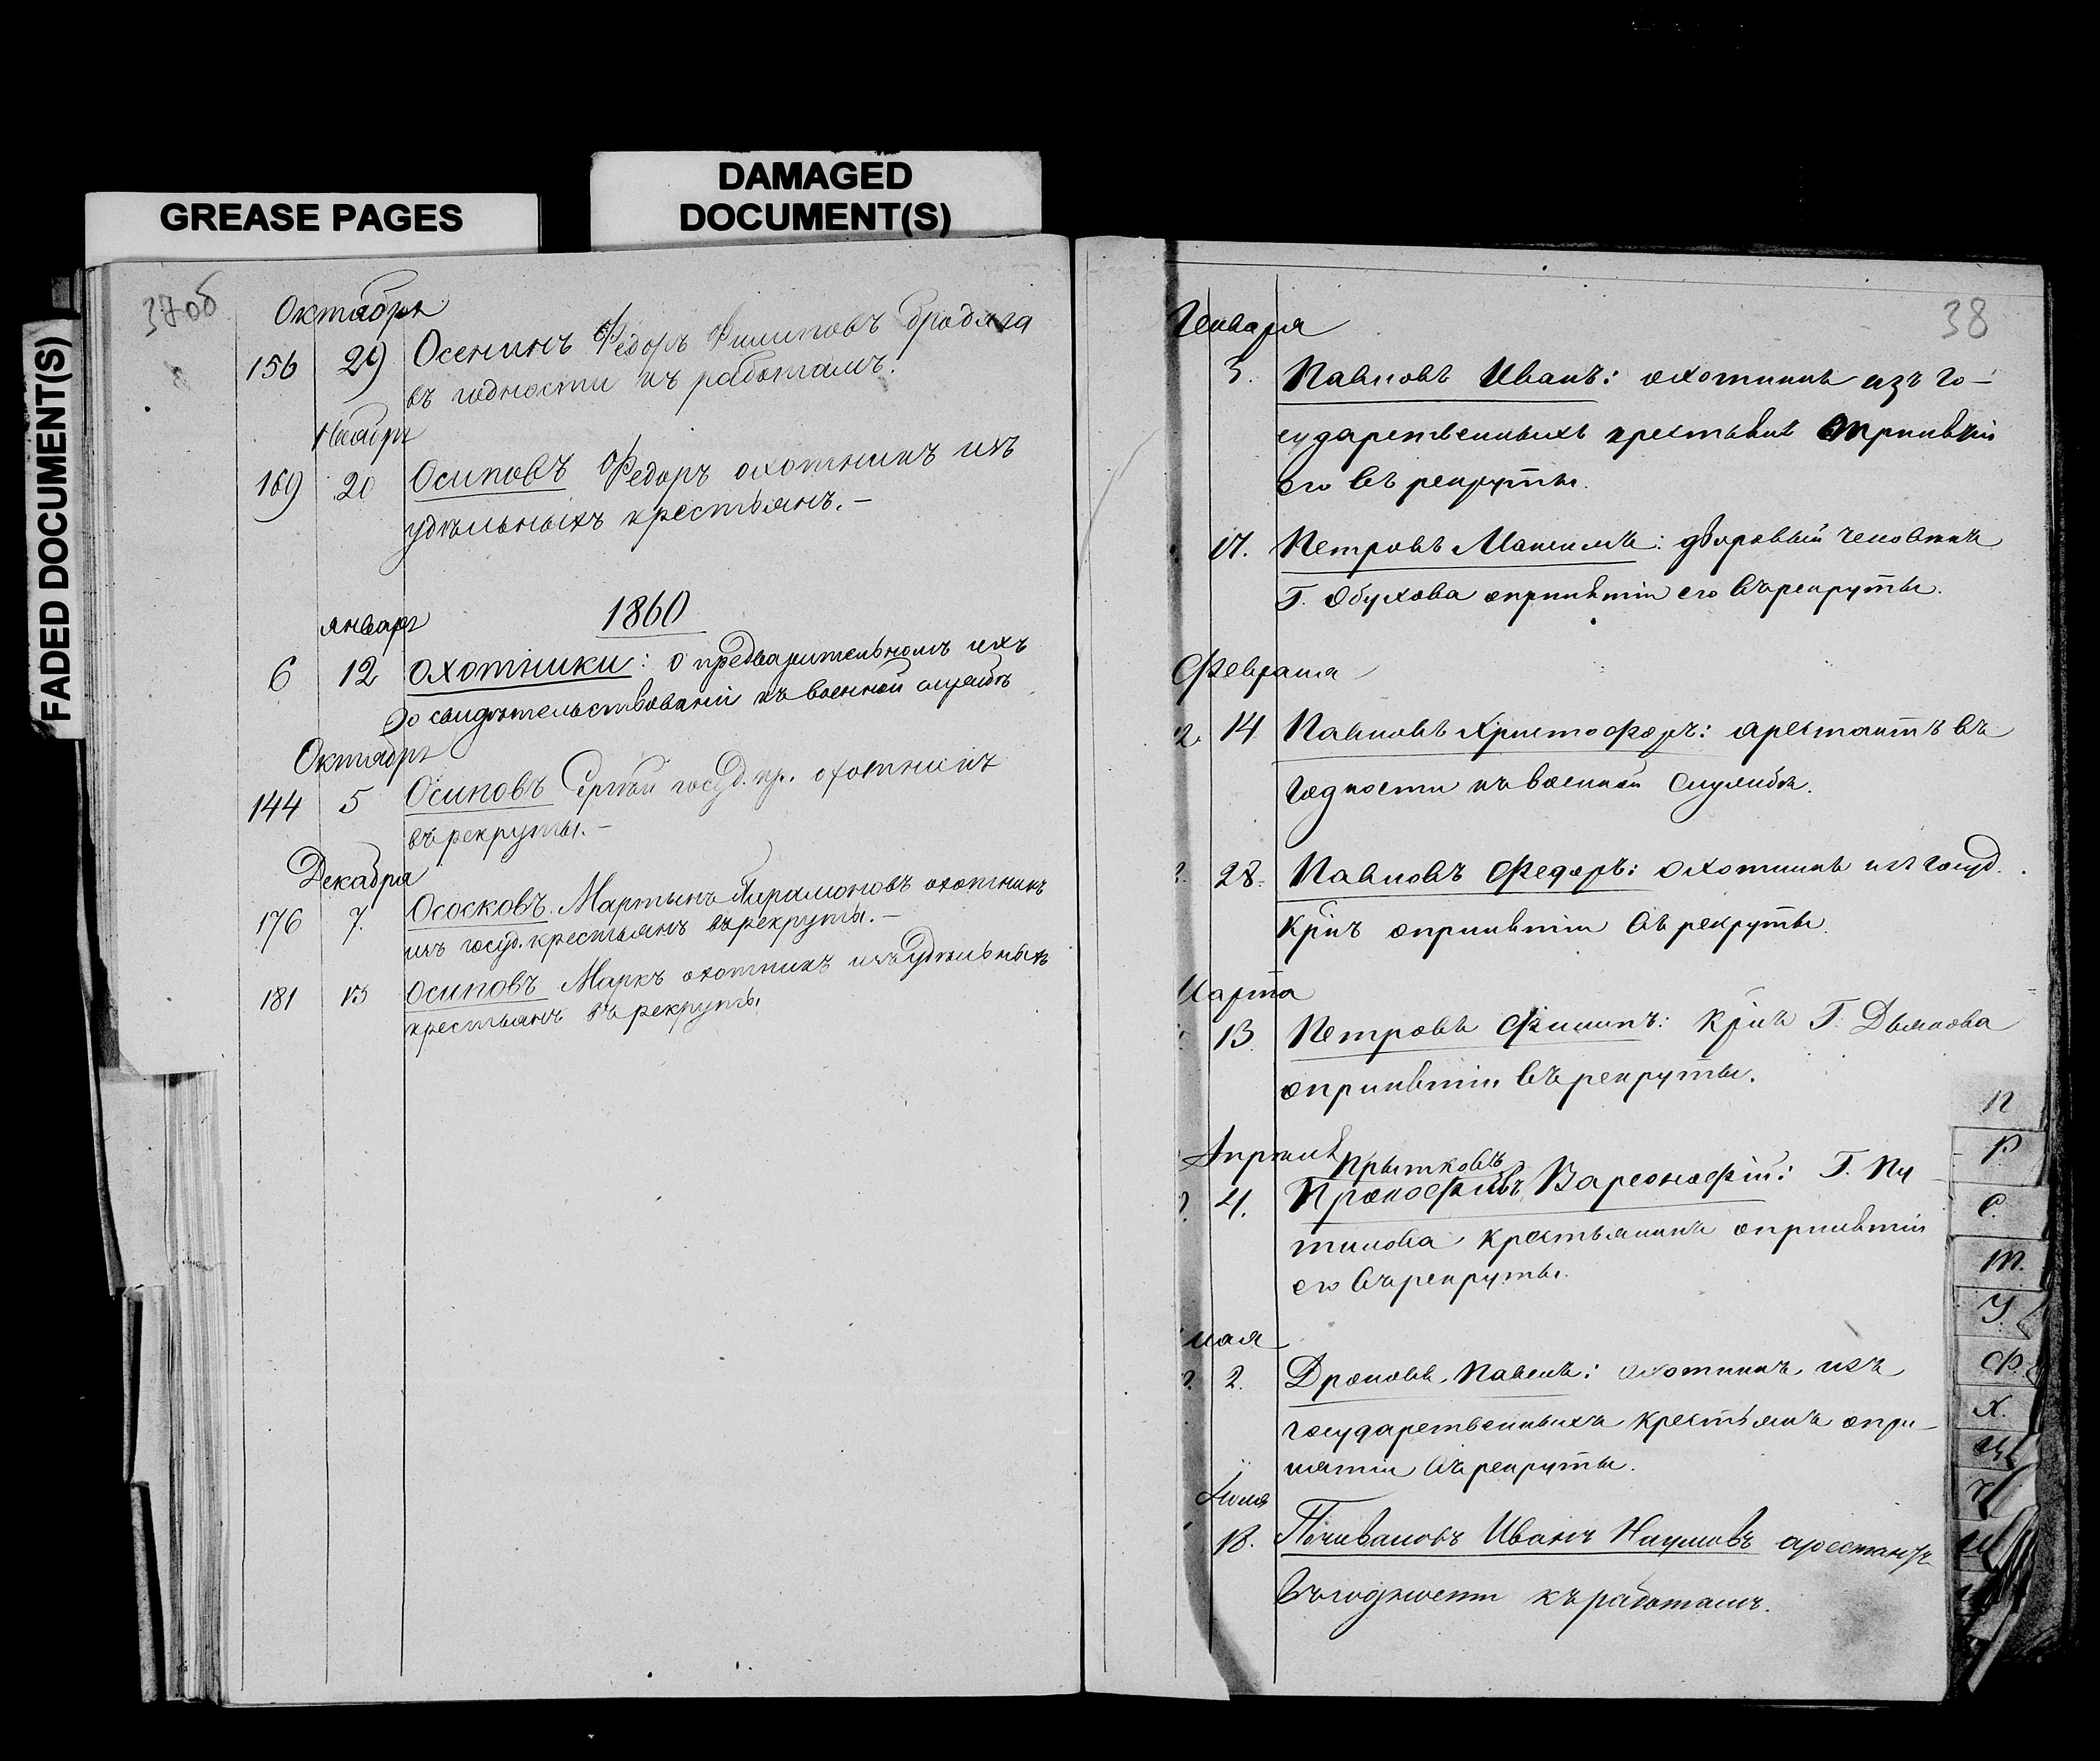 GREASE PAGES
DAMAGED
DOCUMENT(S)
FADED DOCUMENT(S)
37об
Октября
156 29 Осенинъ Федоръ Филиповъ бродяга
въ годности къ работамъ.
Ноября
169 20 Осиповъ Федоръ охотникъ изъ
удѣльныхъ крестьянъ.—
1860
январь
6 12 Охотники: о предварительномъ ихъ
освидѣтельствованіи къ военной службѣ
Октябрь
144 5 Осиповъ Сергѣй госуд. кр. охотникъ
въ рекруты.—
Декабря
176 7. Ососковъ Мартынъ Парамоновъ охотникъ
изъ госуд. крестьянъ въ рекруты.—
181 Осиповъ Маркъ охотникъ изъ удѣльныхъ
крестьянъ въ рекруты
38
Генваря
3. Павловъ Иванъ: охотникъ изъ го-
сударственныхъ крестьянъ опринятіи
его въ рекруты.
17. Петровъ Максимъ: дворовый человѣкъ
Г. Обухова опринятіи его въ рекруты.
Февраля
14 Павловъ Христофоръ: арестантъ въ
годности къ военной службѣ.
28. Павловъ Федоръ: охотникъ изъ госуд.
крнъ опринятіи въ рекруты.
Марта
13. Петровъ Филипъ: крнъ Г. Дымкова
опринятіи въ рекруты.
Апрѣля
Прытковъ
4. Прокофьевъ Варсонофій: Г. Пу
тилова крестьянинъ опринятіи
его въ рекруты.
мая
2. Дроновъ Павелъ: охотникъ изъ
государственныхъ крестьянъ опри-
нятіи въ рекруты.
Поливановъ Иванъ Наумовъ арестантъ
въ годности къ работамъ.
П
Р
С.
Т.
У.
Ф.
Х.
Ц
Ч